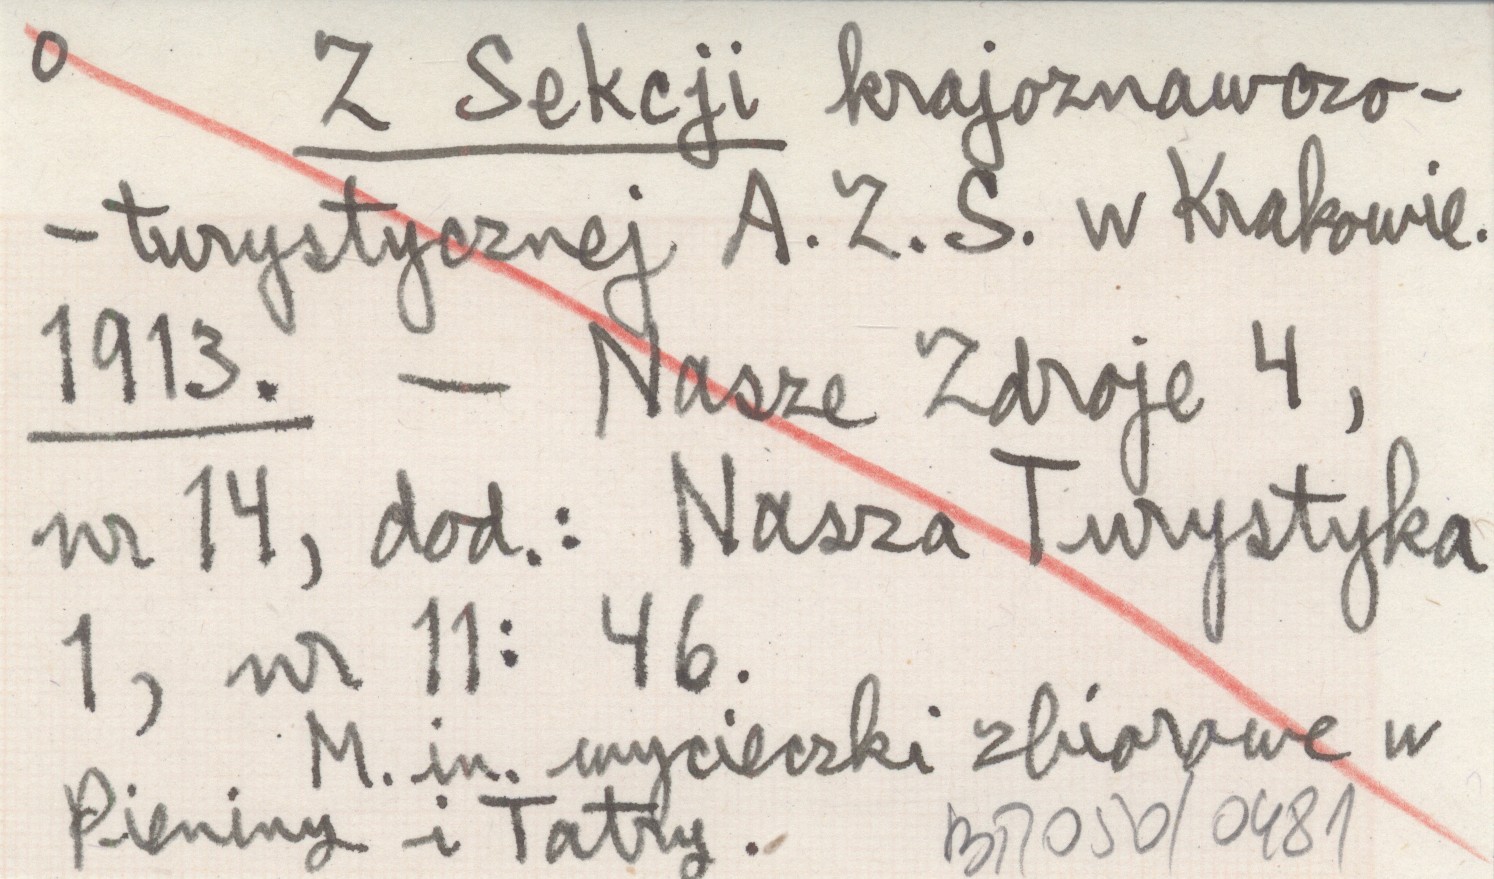 o Z Sekcji krajoznawczo-
-turystycznej A.Z.S. w Krakowie.
1913. — Nasze Zdroje 4,
nr 14, dod.: Nasza Turystyka
1, nr 11: 46.
M. in. wycieczki zbiorowe w
Pieniny i Tatry.
BP/050/0481